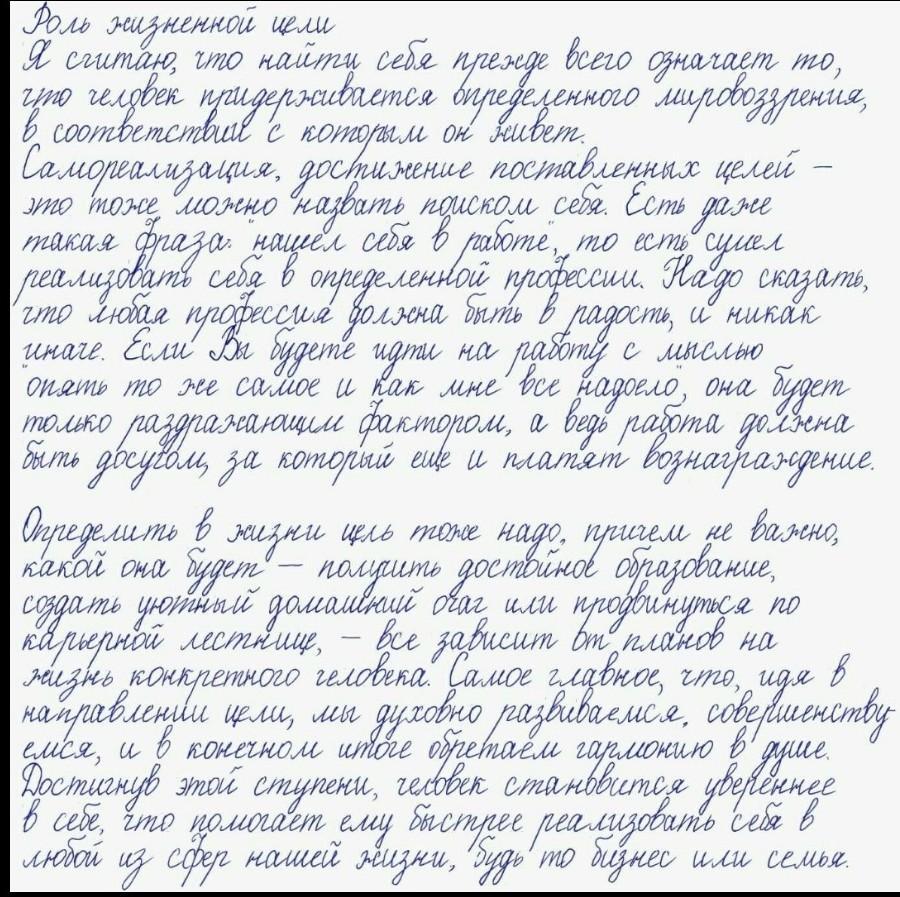 Роль жизненной цели
Я считаю, что найти себя прежде всего означает то,
что человек придерживается определенного мировоззрения,
в соответствии с которым он живет.
Самореализация, достижение поставленных целей –
это тоже можно назвать поиском себя. Есть даже
такая фраза: "нашел себя в работе", то есть сумел
реализовать себя в определенной профессии. Надо сказать,
что любая профессия должна быть в радость, и никак
иначе. Если Вы будете идти на работу с мыслью
"опять то же самое и как мне все надоело", она будет
только раздражающим фактором, а ведь работа должна
быть досугом, за который еще и платят вознаграждение.
Определить в жизни цель тоже надо, причем не важно,
какой она будет – получить достойное образование,
создать уютный домашний очаг или продвинуться по
карьерной лестнице, – все зависит от планов на
жизнь конкретного человека. Самое главное, что, идя в
направлении цели, мы духовно развиваемся, совершенству
емся, и в конечном итоге обретаем гармонию в душе.
Достигнув этой ступени, человек становится увереннее
в себе, что помогает ему быстрее реализовать себя в
любой из сфер нашей жизни, будь то бизнес или семья.